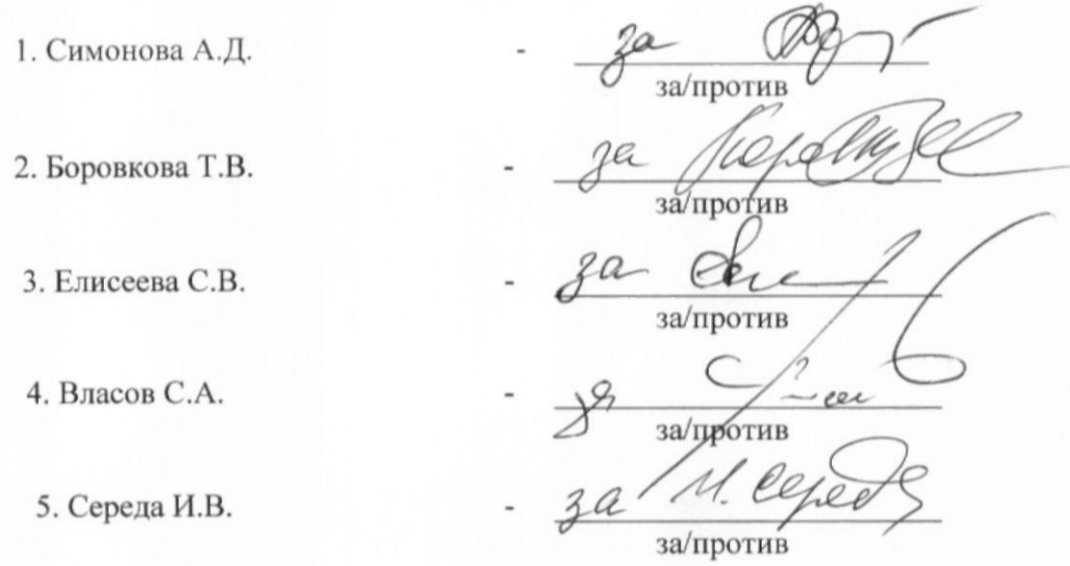 1. Симонова А.Д. - за
за/против
2. Боровкова Т.В. - за
за/против
3. Елисеева С.В. - за
за/против
4. Власов С.А. - за
за/против
5. Середа И.В. - за И. Середа
за/против